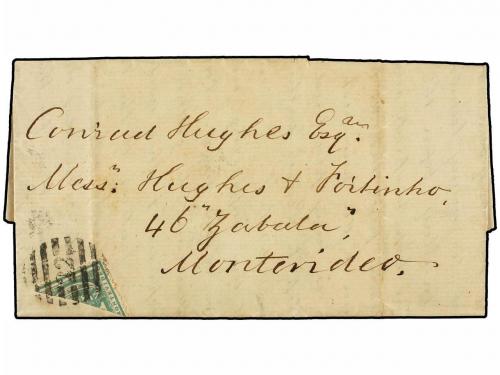 Conrad Hughes Esqre.
Messrs: Hughes & Fortinho,
46 "Zabala",
Montevideo.